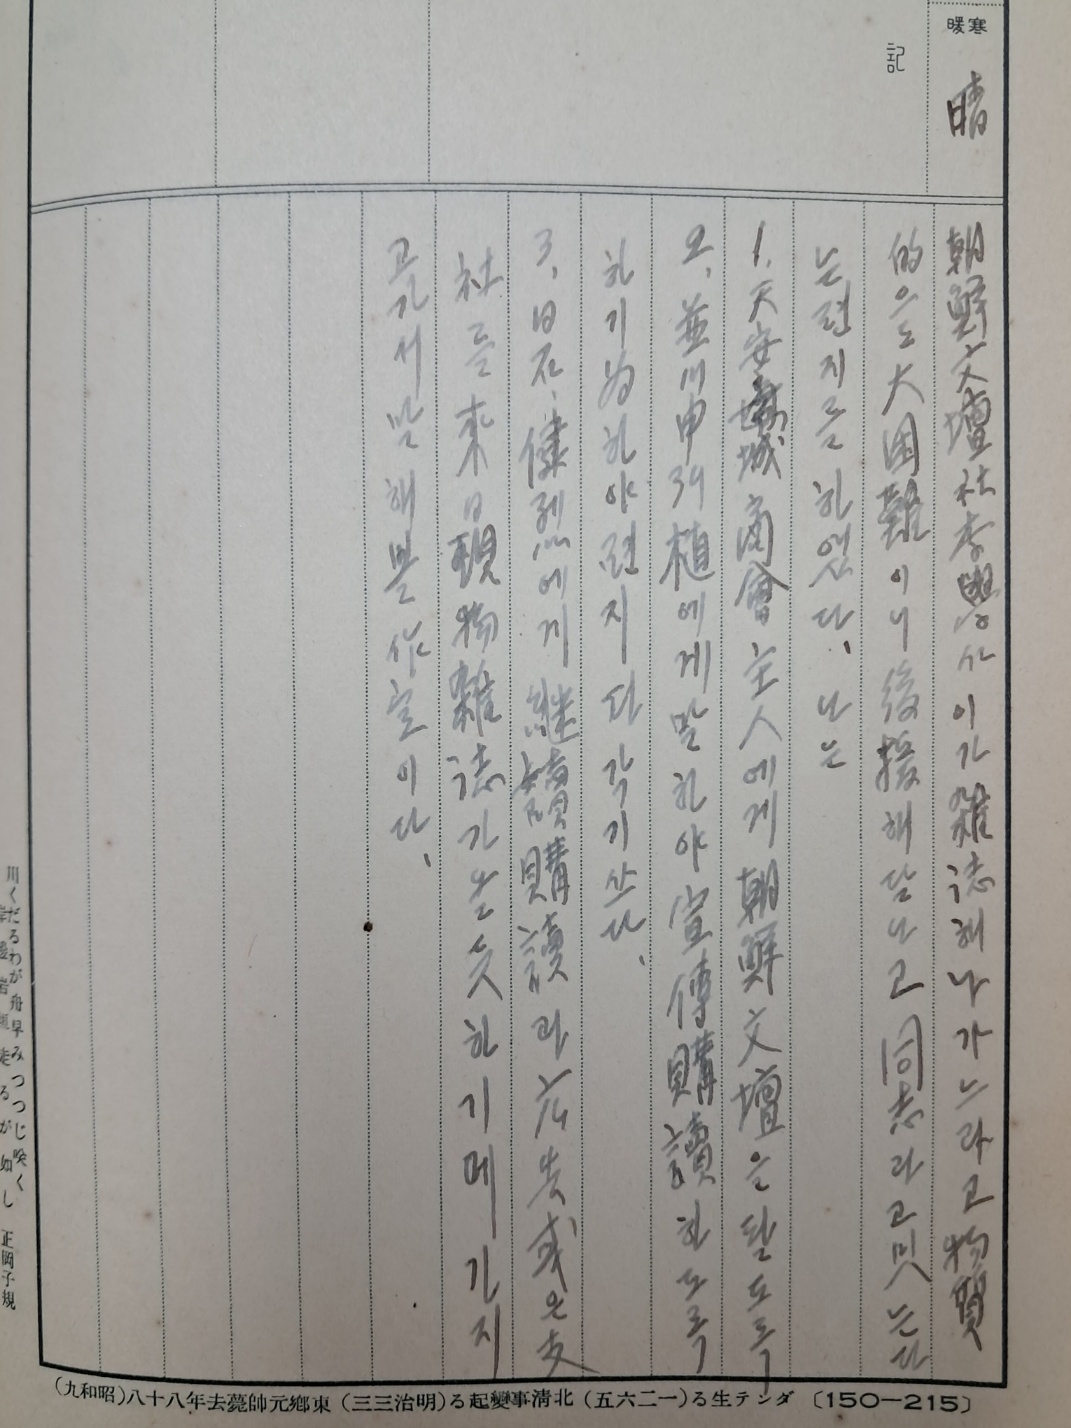 寒暖
晴
記
朝鮮文壇社李學人이가 雜誌해나가느라고 物質
的으로 大困難이니 後援해달나고 同志라고 믿는다
는 편지를 하엿다. 나는
1. 天安 城 商會主人에게 朝鮮文壇을 팔도록
2. 並川申 植에게 말하야 宣傳購讀하도록
하기 爲하야 편지 다 각기 쓰다.
3. 에게 継續購讀과 広告 或은 支
社를 來日 現物雜誌가 올 듯하기에 가지
고 가서 말해볼 作定이다.
川くだるわが舟早みつつじ咲く
るが如し 正岡子規
〔150—215〕 ダンテ生る(一二六五) 北清事變起る(明治三三) 東鄉元帥薨去年八十八(昭和九)